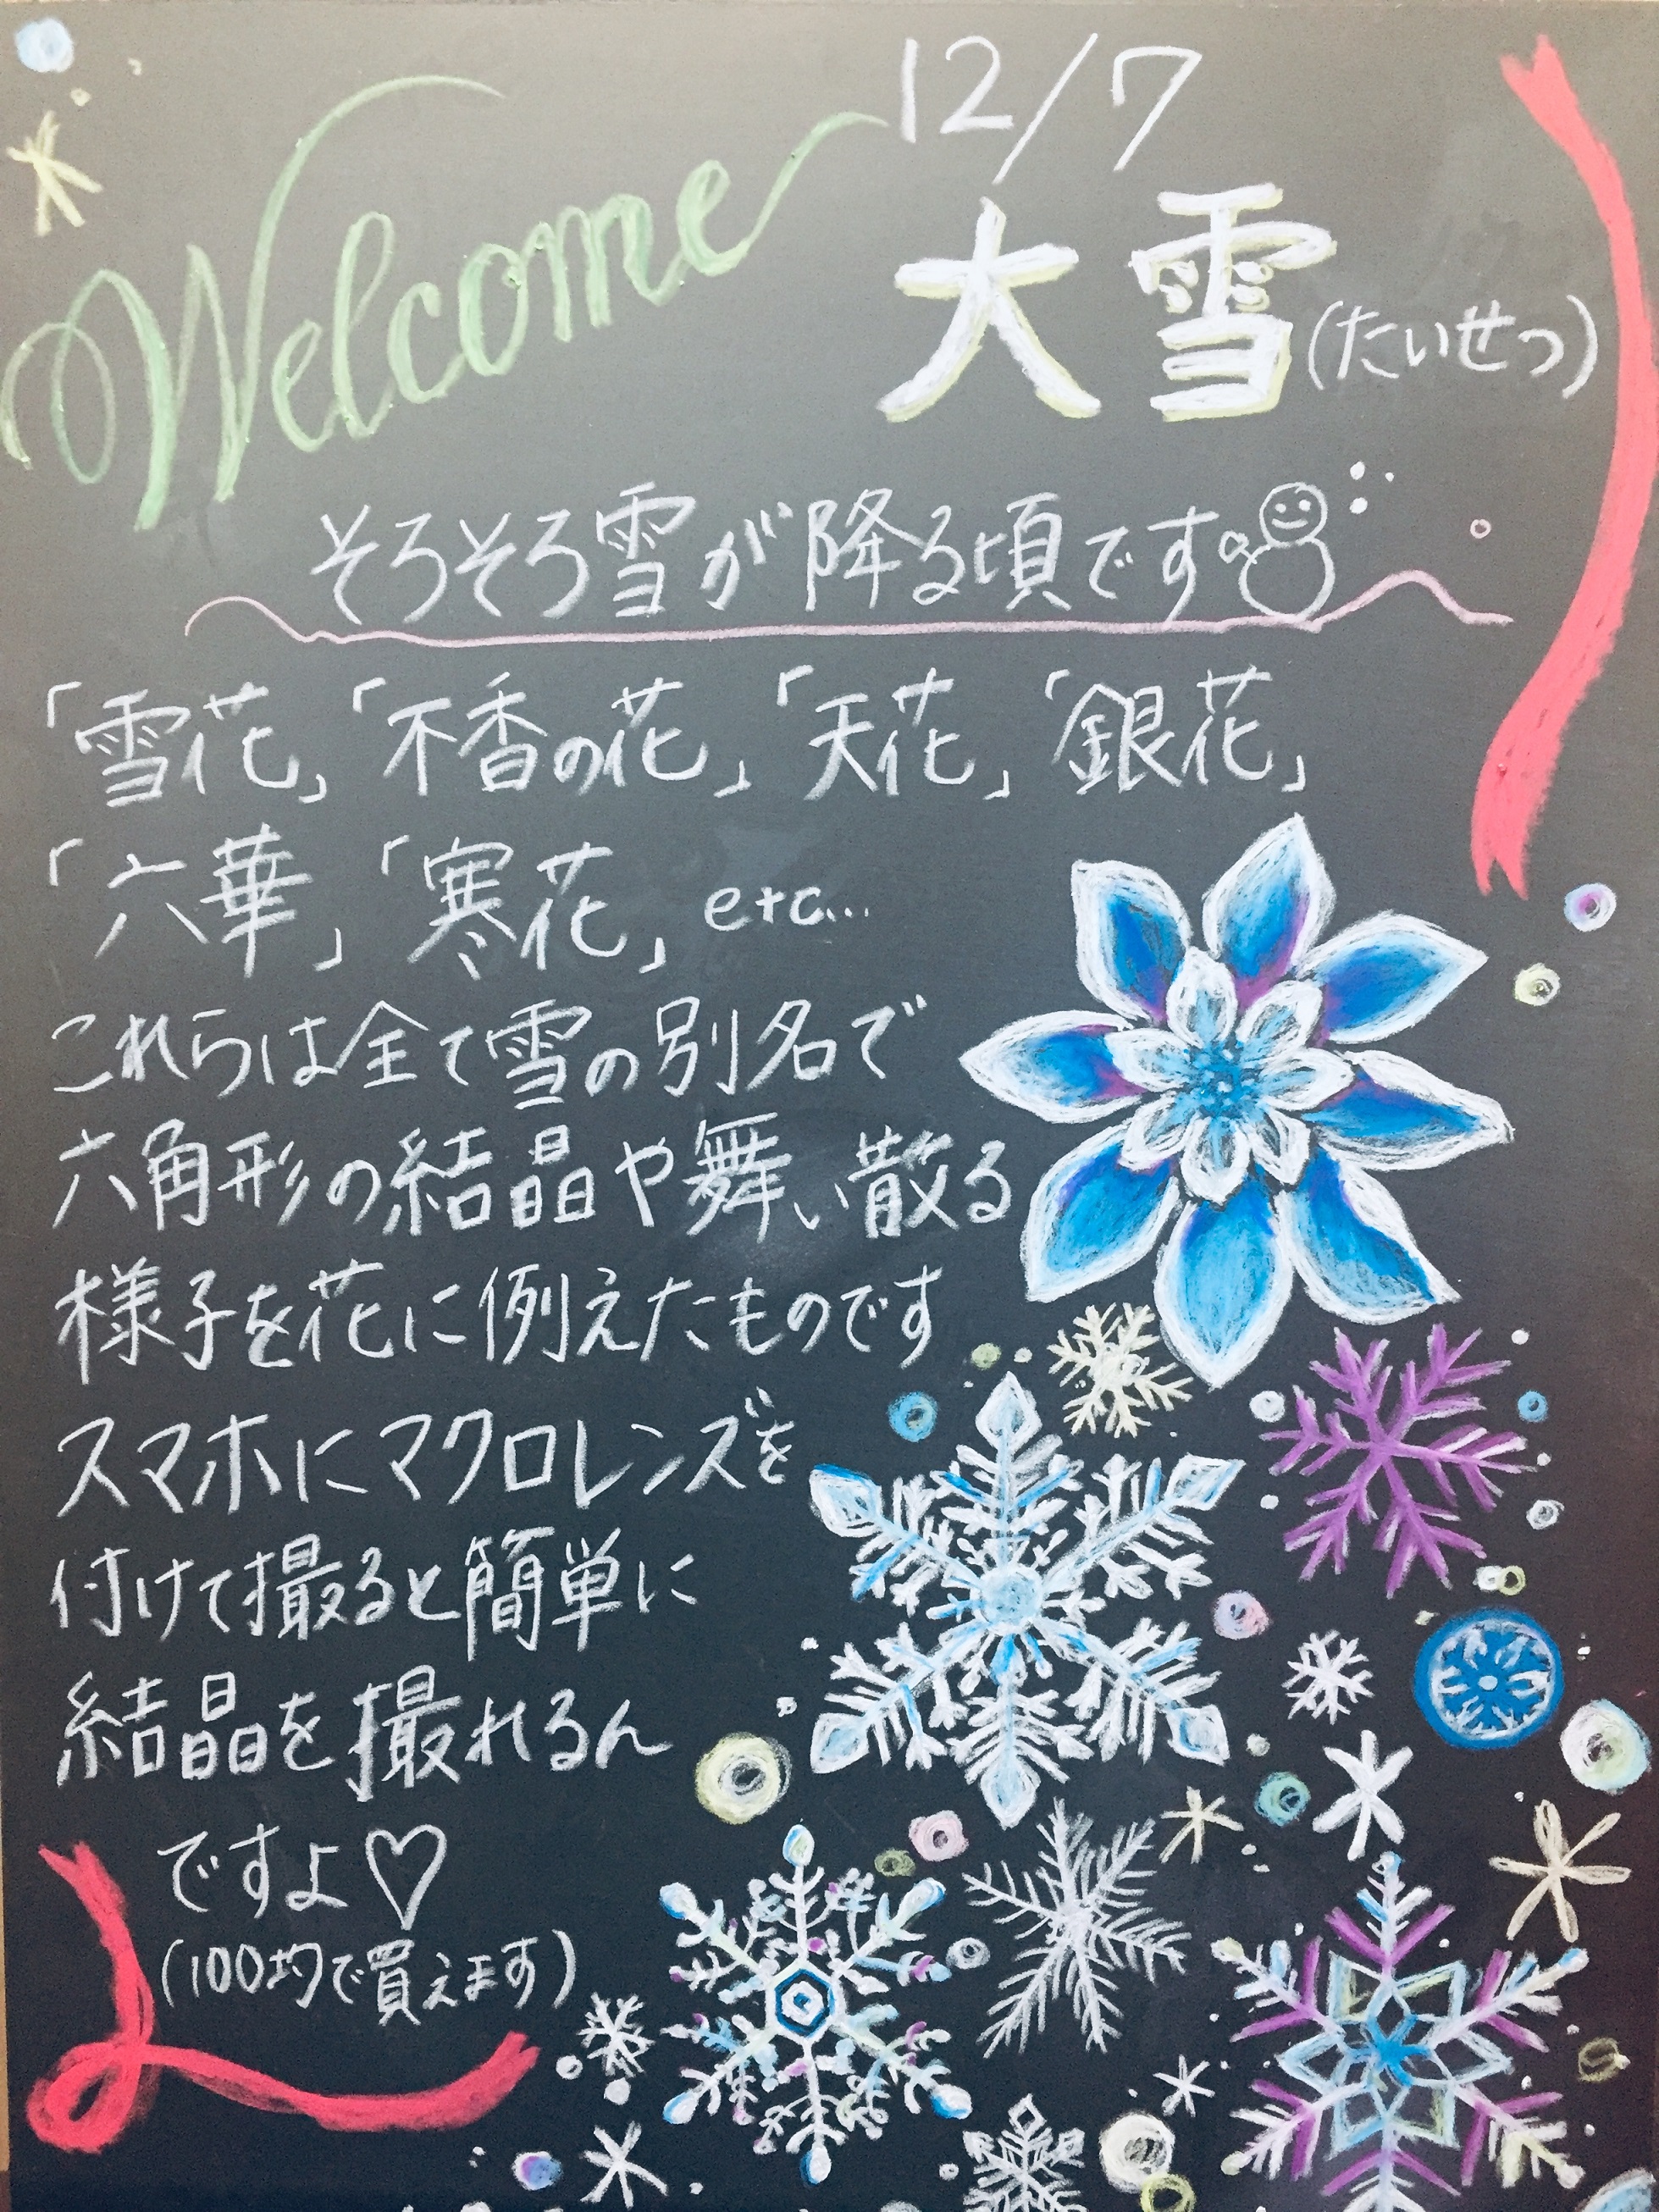 Welcome
12/7
大雪(たいせつ)
そろそろ雪が降る頃です
「雪花」「不香の花」「天花」「銀花」
「六華」「寒花」etc...
これらは全て雪の別名で
六角形の結晶や舞い散る
様子を花に例えたものです
スマホにマクロレンズを
付けて撮ると簡単に
結晶を撮れるん
ですよ♡
(100均で買えます)